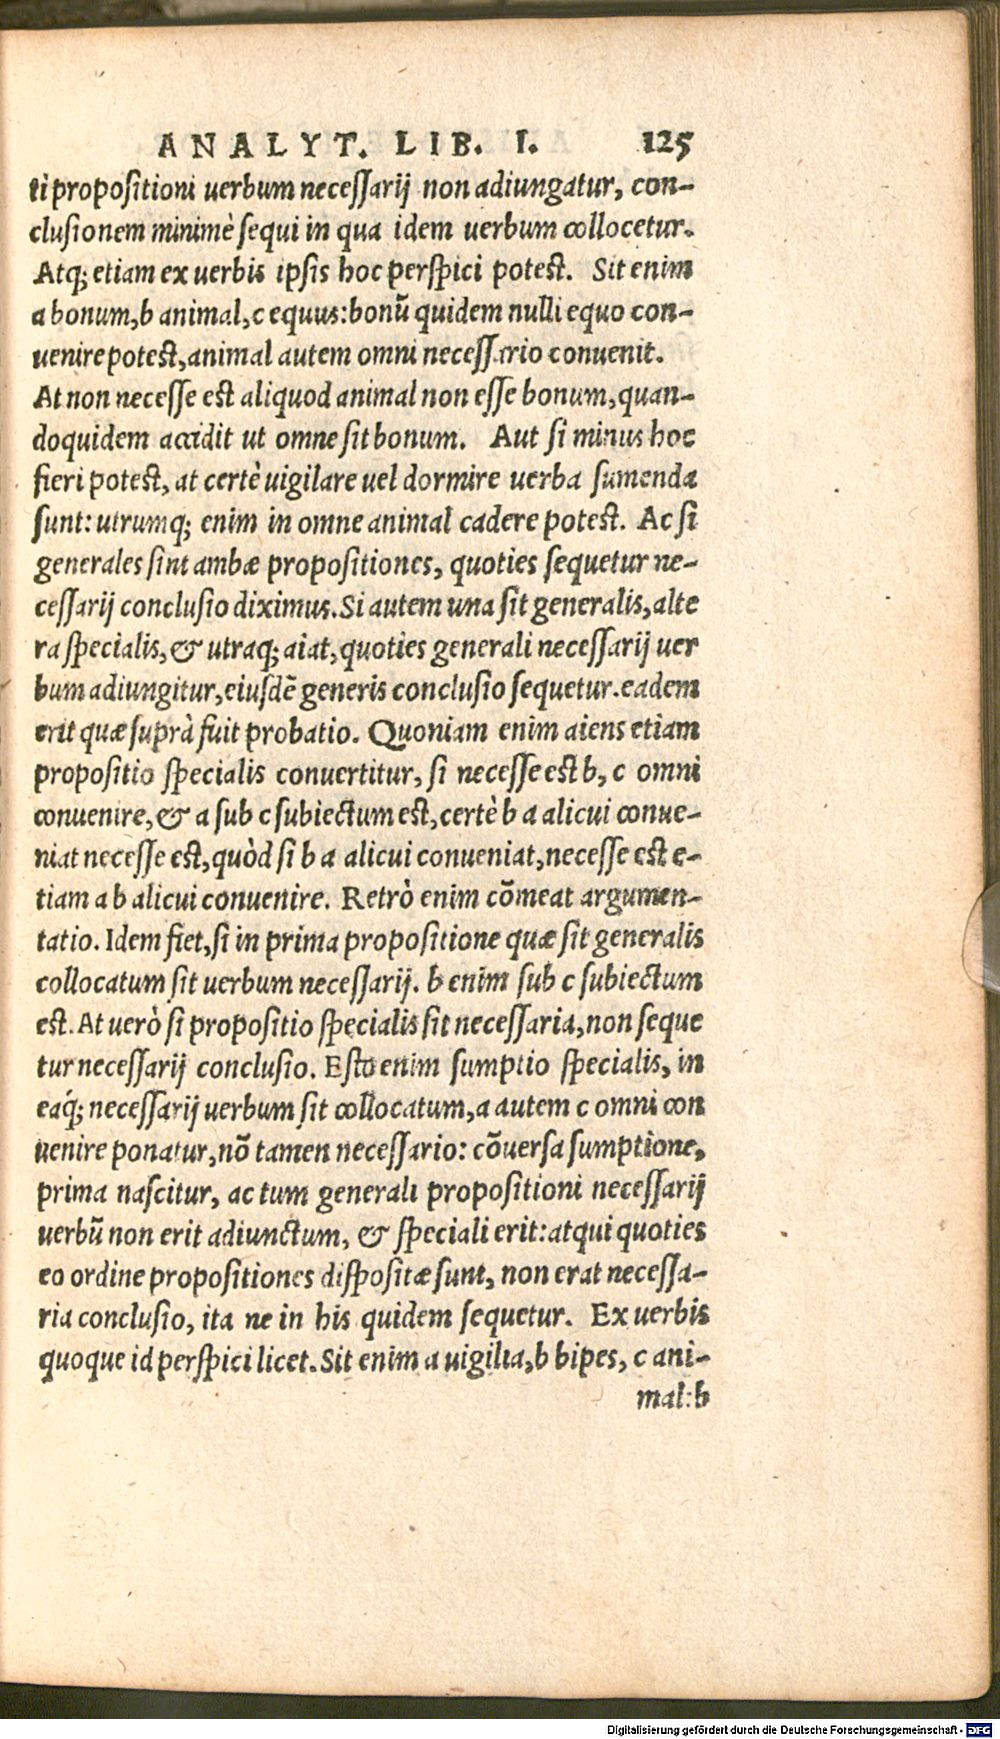 ANALYT. LIB. I. 125
ti propositioni uerbum necessarij non adiungatur, con-
clusionem minimè sequi in qua idem uerbum collocetur.
Atq; etiam ex uerbis ipsis hoc perspici potest. Sit enim
a bonum, b animal, c equus: bonū quidem nulli equo con-
uenire potest, animal autem omni necessario conuenit.
At non necesse est aliquod animal non esse bonum, quan-
doquidem accidit ut omne sit bonum. Aut si minus hoc
fieri potest, at certè uigilare uel dormire uerba sumenda
sunt: utrumq; enim in omne animal cadere potest. Ac si
generales sint ambæ propositiones, quoties sequetur ne-
cessarij conclusio diximus. Si autem una sit generalis, alte
ra specialis, & utraq; aiat, quoties generali necessarij uer
bum adiungitur, eiusdē generis conclusio sequetur. eadem
erit quæ suprà fuit probatio. Quoniam enim aiens etiam
propositio specialis conuertitur, si necesse est b, c omni
conuenire, & a sub c subiectum est, certè b a alicui conue-
niat necesse est, quòd si b a alicui conueniat, necesse est e-
tiam a b alicui conuenire. Retrò enim cōmeat argumen-
tatio. Idem fiet, si in prima propositione quæ sit generalis
collocatum sit uerbum necessarij. b enim sub c subiectum
est. At uerò si propositio specialis sit necessaria, non seque
tur necessarij conclusio. Esto enim sumptio specialis, in
eaq́; necessarij uerbum sit collocatum, a autem c omni con
uenire ponatur, nō tamen necessario: cōuersa sumptione,
prima nascitur, ac tum generali propositioni necessarij
uerbū non erit adiunctum, & speciali erit: atqui quoties
eo ordine propositiones dispositæ sunt, non erat necessa-
ria conclusio, ita ne in his quidem sequetur. Ex uerbis
quoque id perspici licet. Sit enim a uigilia, b bipes, c ani-
mal: b
Digitalisierung gefördert durch die Deutsche Forschungsgemeinschaft - DFG